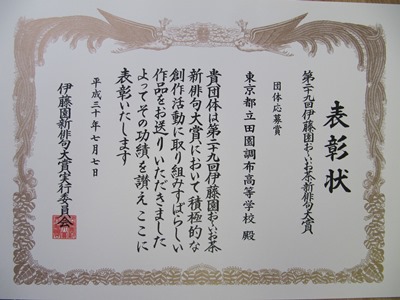 表彰状
第二十九回伊藤園おーいお茶新俳句大賞
団体応募賞
東京都立田園調布高等学校 殿
貴団体は第二十九回伊藤園おーいお茶
新俳句大賞において積極的な
創作活動に取り組みすばらしい
作品をお送りいただきました
よってその功績を讃えここに
表彰いたします
平成三十年七月七日
伊藤園新俳句大賞実行委員会